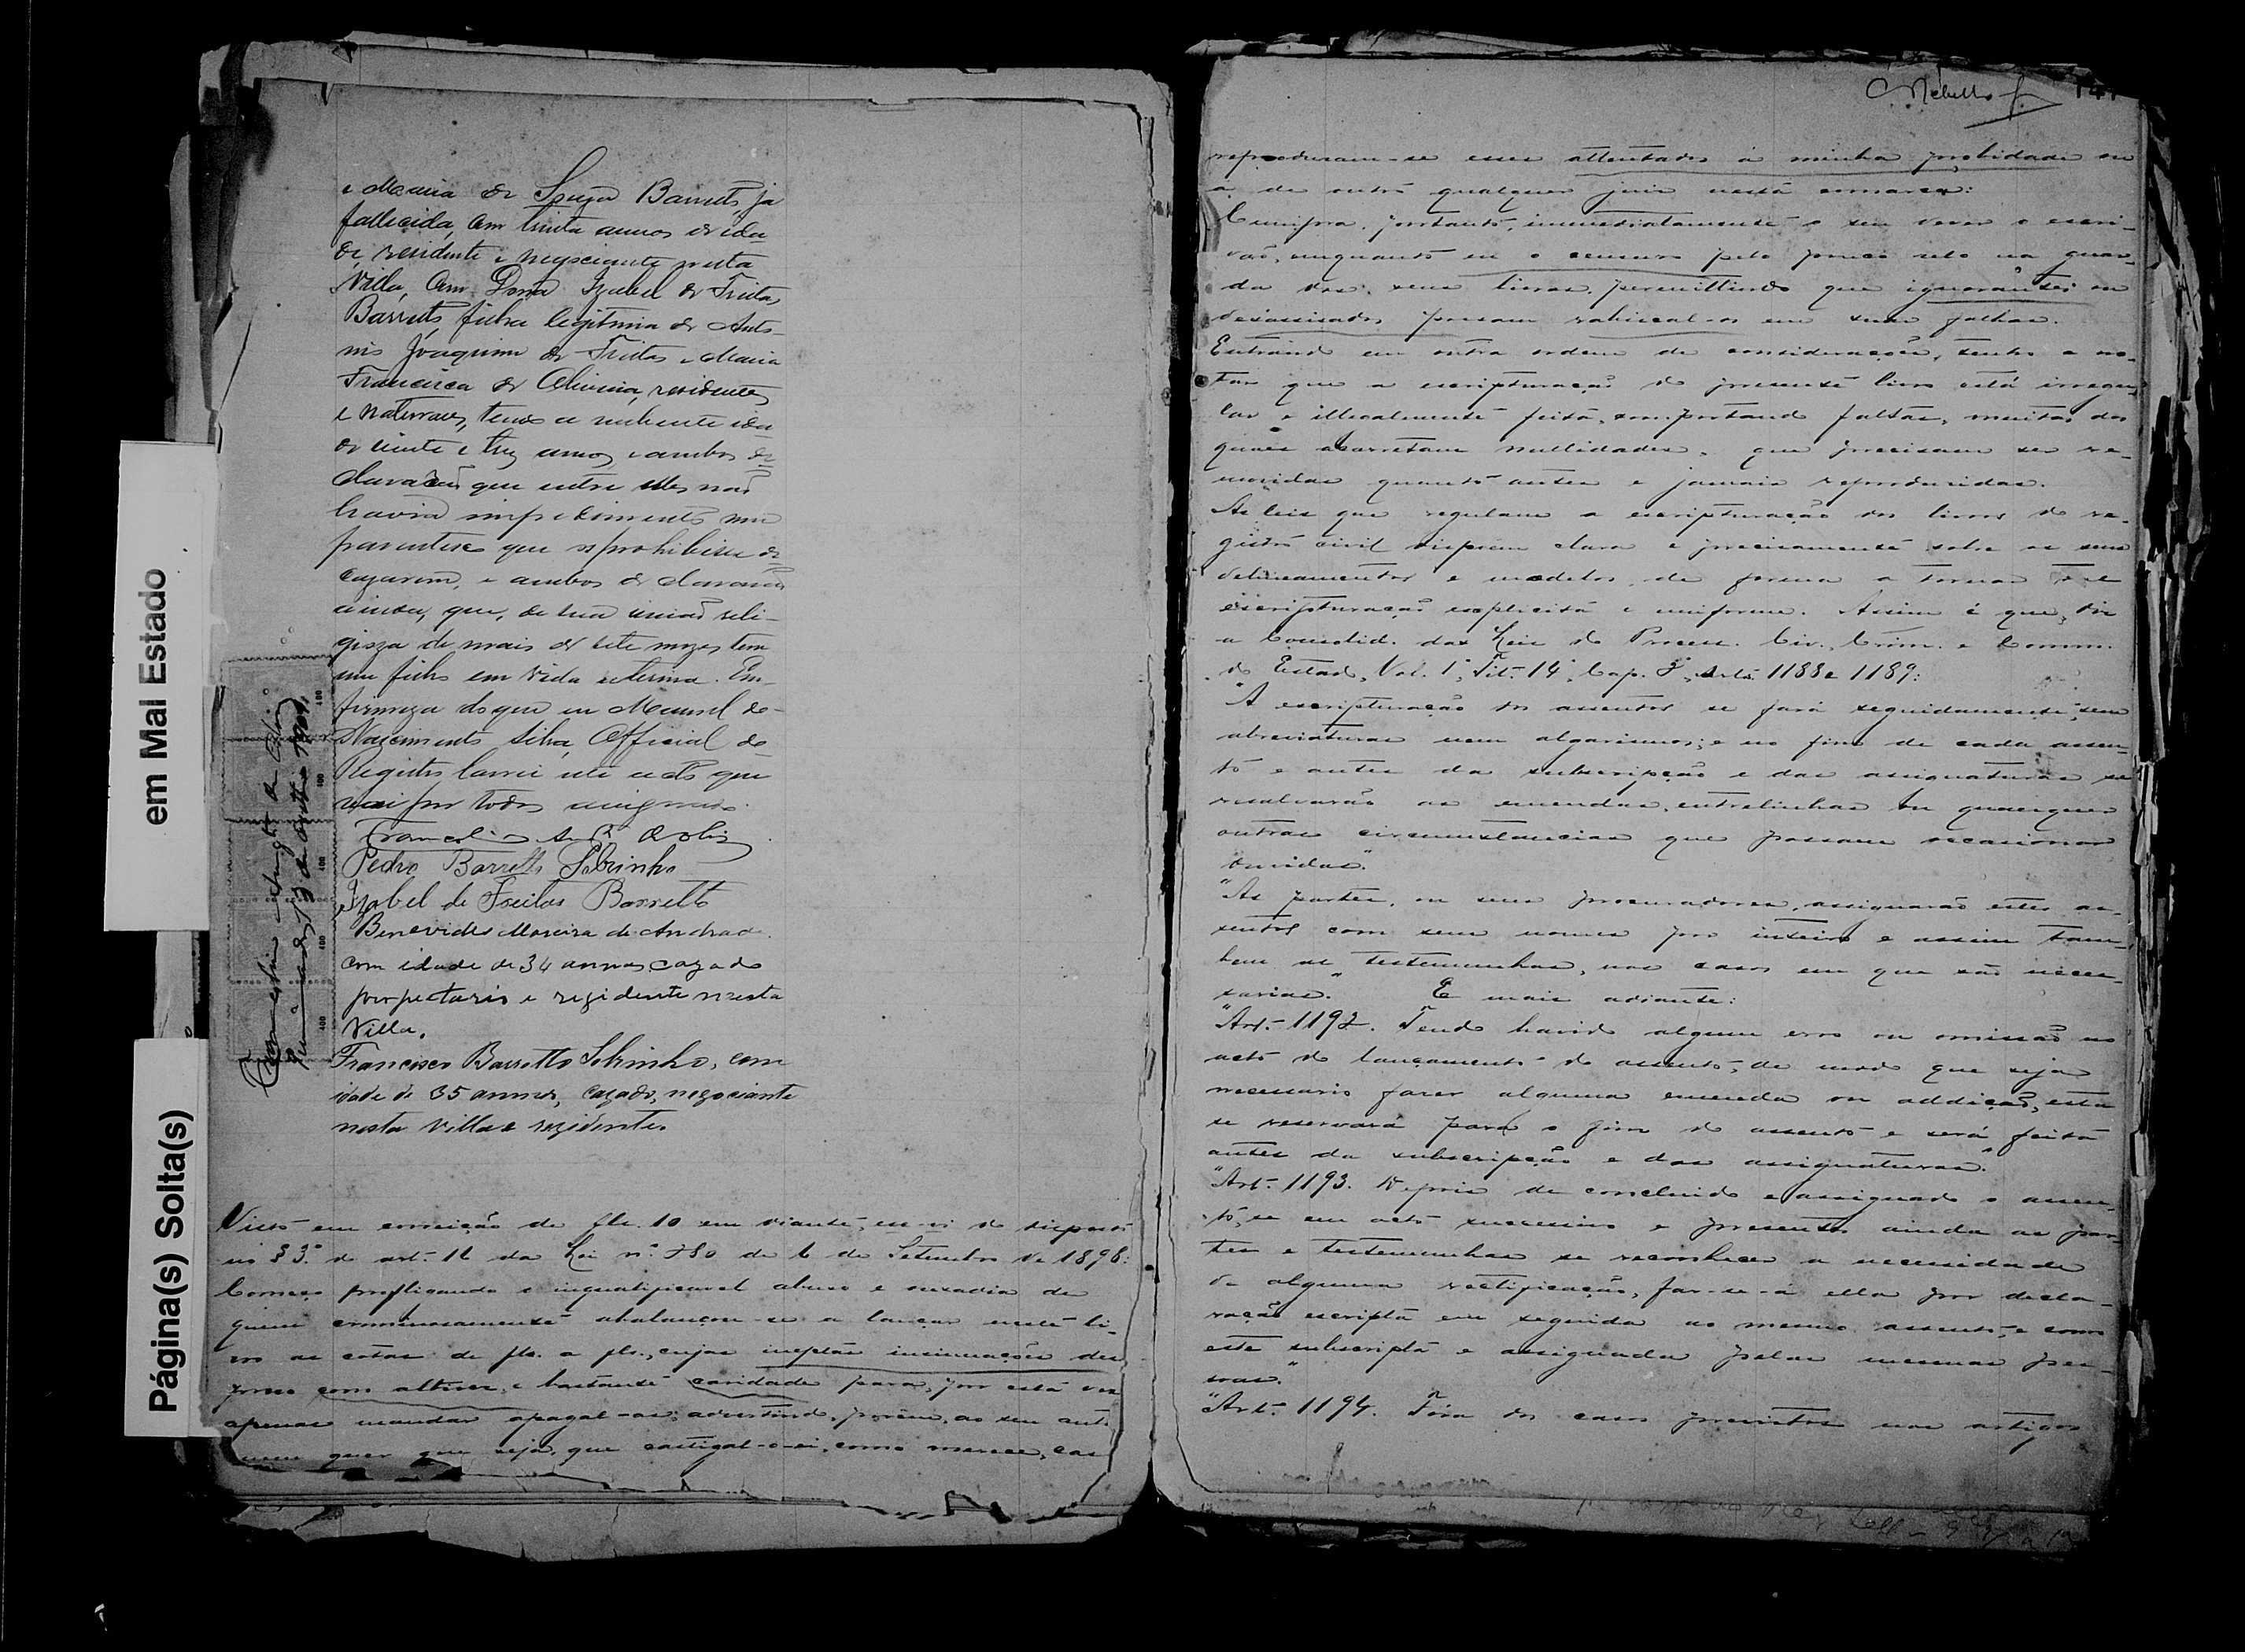 em Mal Estado
Página(s) Solta(s)
e Maria de Souza Barretto, já
fallecida, com trinta annos de ida-
de, residente e negociante nesta
Villa, com Dona Izabel de Freitas
Barretto, filha legitima de Anto-
nio Joaquim de Freitas e Maria
Francisca de Oliveira, residentes
e naturaes, tendo a nubente ida-
de vinte e trez annos, e ambos de-
clararão que entre elles não
havia impedimento nem
parentesco que os prohibisse de
cazarem, e ambos declararão
ainda, que, de sua união reli-
gioza de mais de sete mezes tem
um filho em vida uterina. Em
firmeza do que eu Manoel do
Nascimento Silva, Official do
Registro lavrei este acto que
vai por todos assignado.
Pedro Barretto Sobrinho
Izabel de Freitas Barretto
Benevides Moreira de Andrade
com idade de 34 annos cazado
propectario e rezidente nesta
Villa.
Francisco Barretto Sobrinho, com
idade de 35 annos, cazado, negociante
nesta villa e rezidente.
400
400
400
400
400
Visto em correição de fls. 10 em diante, ex-vi do disposto
no § 3º do art. 16 da Lei nº 280 de 6 de Setembro de 1898:
Começo profligando o inqualificavel abuso e ousadia de
quem criminosamente abalançou-se a lançar neste li-
vro as cotas de fls. a fls., cujas ineptas insinuações des-
preso com altivez, e bastante caridade para, por esta vez
apenas mandar apagal-as; advertindo, porém, ao seu autor
quem quer que seja, que castigal-o-ei, como merece, caso
C Rebello
141
reproduzam-se esses attentados á minha probidade ou
á de outro qualquer juiz nesta comarca:
Cumpra, portanto, immediatamente o seu dever o escri-
vão, emquanto eu o censuro pelo pouco zelo na guar-
da dos seus livros, permittindo que ignorantes ou
desassisados possam rabiscal-os em suas folhas.
Entrando em outra ordem de considerações, tenho a no-
tar que a escripturação do presente livro está irregu-
lar e illegalmente feita, comportando faltas, muitas das
quaes acarretam nullidades, que precisam ser re-
movidas quanto antes e jamais reproduzidas.
As leis que regulam a escripturação dos livros do re-
gistro civil dispõem clara e precisamente sobre os seus
delineamentos e modelos, de forma a tornar
escripturação explicita e uniforme. Assim é que, diz
a Consolid. das Leis do Process. Civ., Crim. e Comm.
do Estado, Vol. 1º, Tit. 14, Cap. 8º, Arts. 1188 e 1189:
"A escripturação dos assentos se fará seguidamente, sem
abreviaturas nem algarismos; e no fim de cada assen-
to e antes da subscripção e das assignaturas se
resalvarão as emendas, entrelinhas ou quaesquer
outras circumstancias que possam occasionar
duvidas".
"As partes, ou seus procuradores, assignarão estes as-
sentos com seus nomes por inteiro e assim tam-
bem as testemunhas, nos casos em que são neces-
sarias." E mais adiante:
"Art. 1192. Tendo havido algum erro ou omissão no
acto do lançamento do assento, de modo que seja
necessario fazer alguma emenda ou addição, esta
se reservará para o fim do assento e será feita
antes da subscripção e das assignaturas."
"Art. 1193. Depois de concluido e assignado o assen-
to, se em acto successivo e presentes ainda as par-
tes e testemunhas se reconhecer a necessidade
de alguma rectificação, far-se-á ella por decla-
ração escripta em seguida ao mesmo assento, e como
este subscripta e assignada pelas mesmas pes-
soas."
"Art. 1194. Fóra dos casos previstos nos artigos